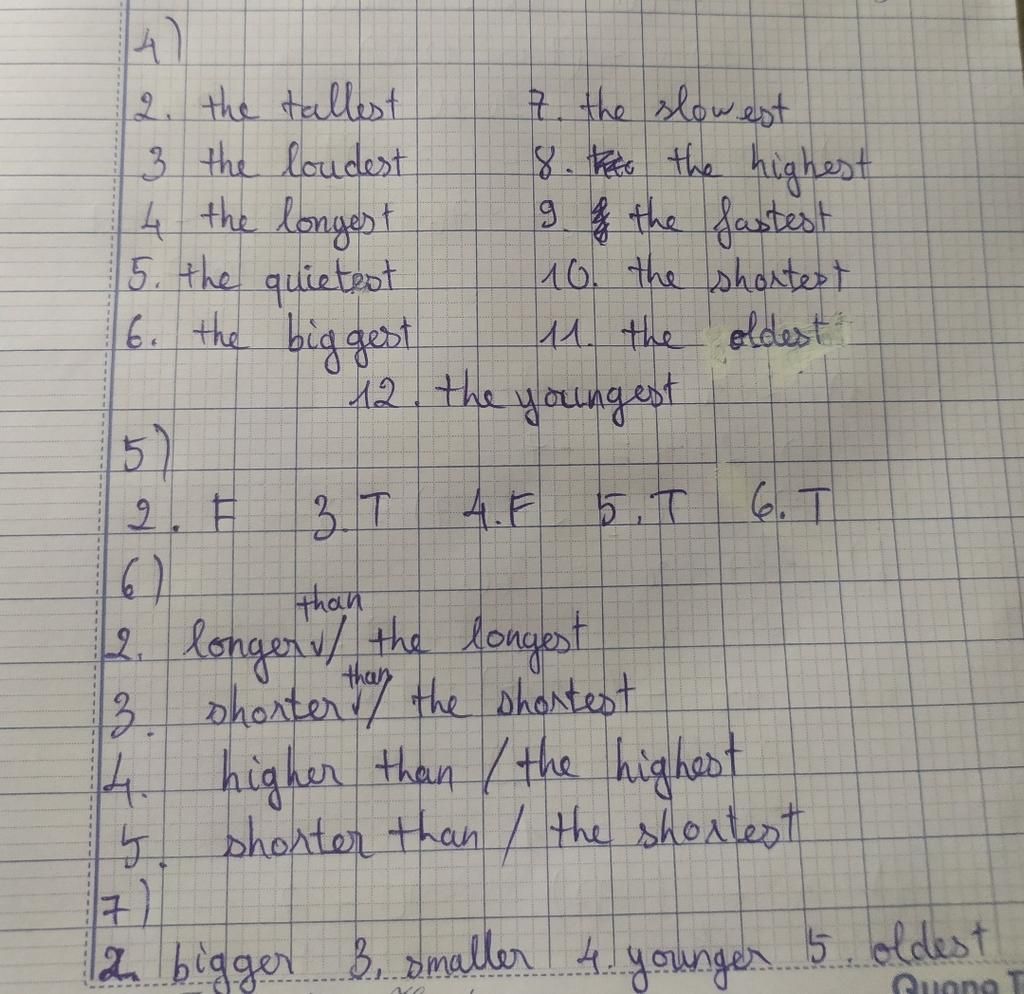 4)
2. the tallest 7. the slowest
3 the loudest 8. the highest
4 the longest 9. the fastest
5. the quietest 10. the shortest
6. the biggest 11. the oldest
12. the youngest
5)
2. F 3. T 4. F 5. T 6. T
6)
than
2. longer √/ the longest
than
3. shorter √/ the shortest
4. higher than / the highest
5. shorter than / the shortest
7)
2. bigger 3. smaller 4. younger 5. oldest
Quang